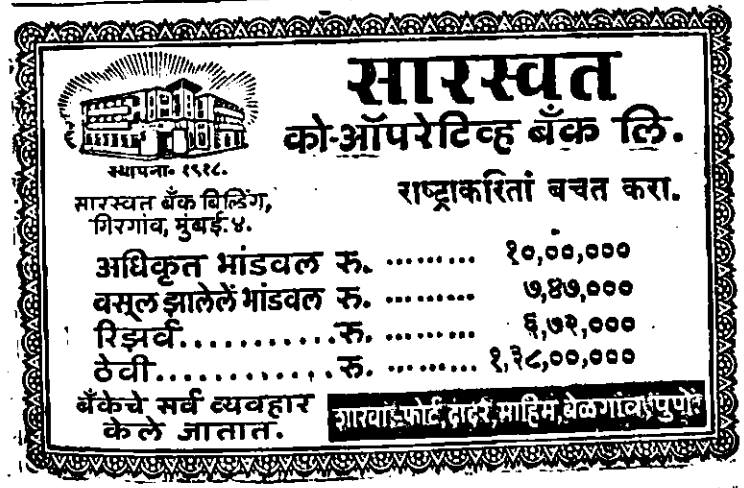 सारस्वत
को-ऑपरेटिव्ह बँक लि.
स्थापना- १९१८.
सारस्वत बँक बिल्डिंग,
गिरगांव, मुंबई.४.
राष्ट्राकरितां बचत करा.
अधिकृत भांडवल रु. ......... १०,००,०००
वसूल झालेलें भांडवल रु. ......... ७,४७,०००
रिझर्व...........रु. ......... ६,७२,०००
ठेवी.............रु. ......... १,३८,००,०००
बँकेचे सर्व व्यवहार
केले जातात.
शाखा:-फोर्ट, दादर, माहिम, बेळगांव, पुणे.